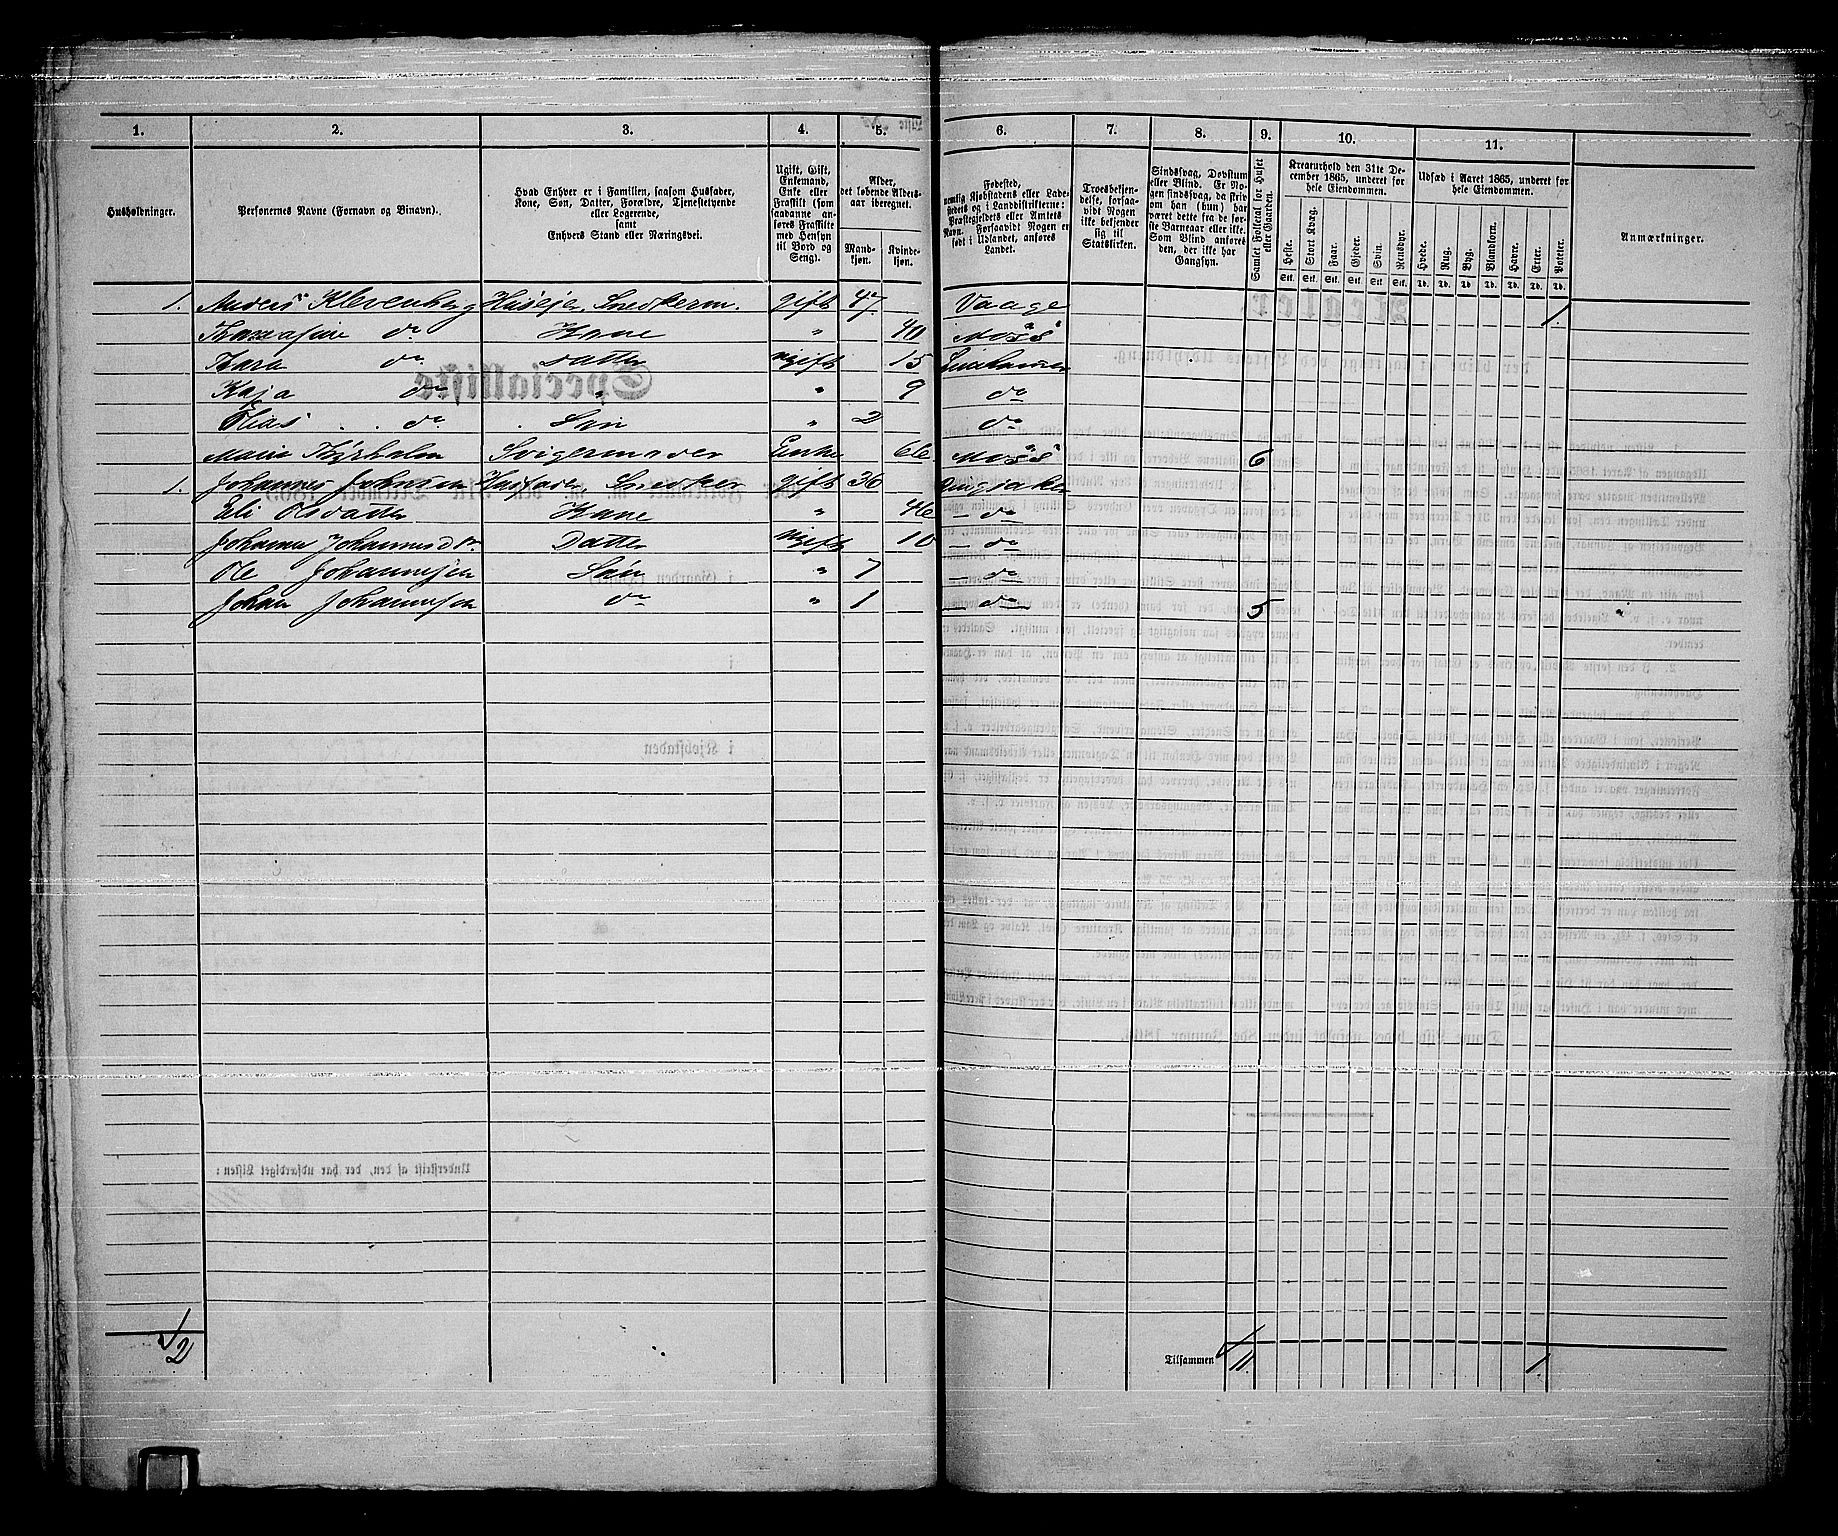 1. 2. 3. 4. 5. 6. 7. 8. 9. 10. 11.
Husholdninger.
Personernes Navne (Fornavn og Binavn).
Hvad Enhver er i Familien, saasom Husfader,
Kone, Søn, Datter, Forældre, Tjenestetyende
eller Logerende,
samt
Enhvers Stand eller Næringsvei.
Ugift, Gift,
Enkemand,
Enke eller
Fraskilt (som
saadanne an-
føres Fraskilte
med Hensyn
til Bord og
Seng).
Alder,
det løbende Alders-
aar iberegnet.
Mand-
kjøn.
Kvinde-
kjøn.
Fødested,
nemlig Kjøbstadens eller Lade-
stedets og i Landdistrikterne:
Præstegjeldets eller Amtets
Navn. Forsaavidt Nogen er
født i Udlandet, anføres
Landet.
Troesbekjen-
delse, forsaa-
vidt Nogen
ikke bekjender
sig til
Statskirken.
Sindssvag, Døvstum
eller Blind. Er No-
gen sindssvag, da skriv
om han (hun) har
været dette fra de før-
ste Barneaar eller ikke.
Som Blind anføres
den, der ikke har
Gangsyn.
Samlet Folketal for Huset
eller Gaarden.
Kreaturhold den 31te De-
cember 1865, underet for
hele Eiendommen.
Heste. Stort Kvæg. Faar. Gjeder. Svin. Rensdyr.
Stk. Stk. Stk. Stk. Stk. Stk.
Udsæd i Aaret 1865, underet for
hele Eiendommen.
Hvede. Rug. Byg. Blandkorn. Havre. Erter. Poteter.
Td. Td. Td. Td. Td. Td. Td.
Anmærkninger.
1. Anders Klevenberg Huseier, Snedkerm. gift 47 Vaage 1.
do Kone " 40 Moss
do datter ugift 15 Lillehammer
Kaja do " " 9 do
Elias do Søn " 2 do
Marie Svigermoder Enke 66 Moss 6
1. Johannes Johnsen Husfader, Snedker gift 36 Ringsaker
Eli Olsdatter Kone " 46 - do
Johanne Johannesdtr. Datter ugift 10 - do
Ole Johannesen Søn " 7 - do
Johan Johannesen do " 1 - do 5
2
Tilsammen 11 1